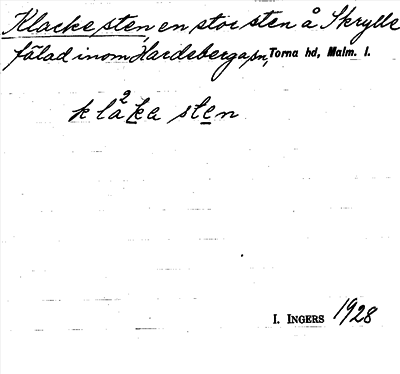 Klacke sten, en stor sten å Skrylle
fälad inom Hardeberga sn, Torna hd, Malm. l.
klåka sten
I. INGERS 1928